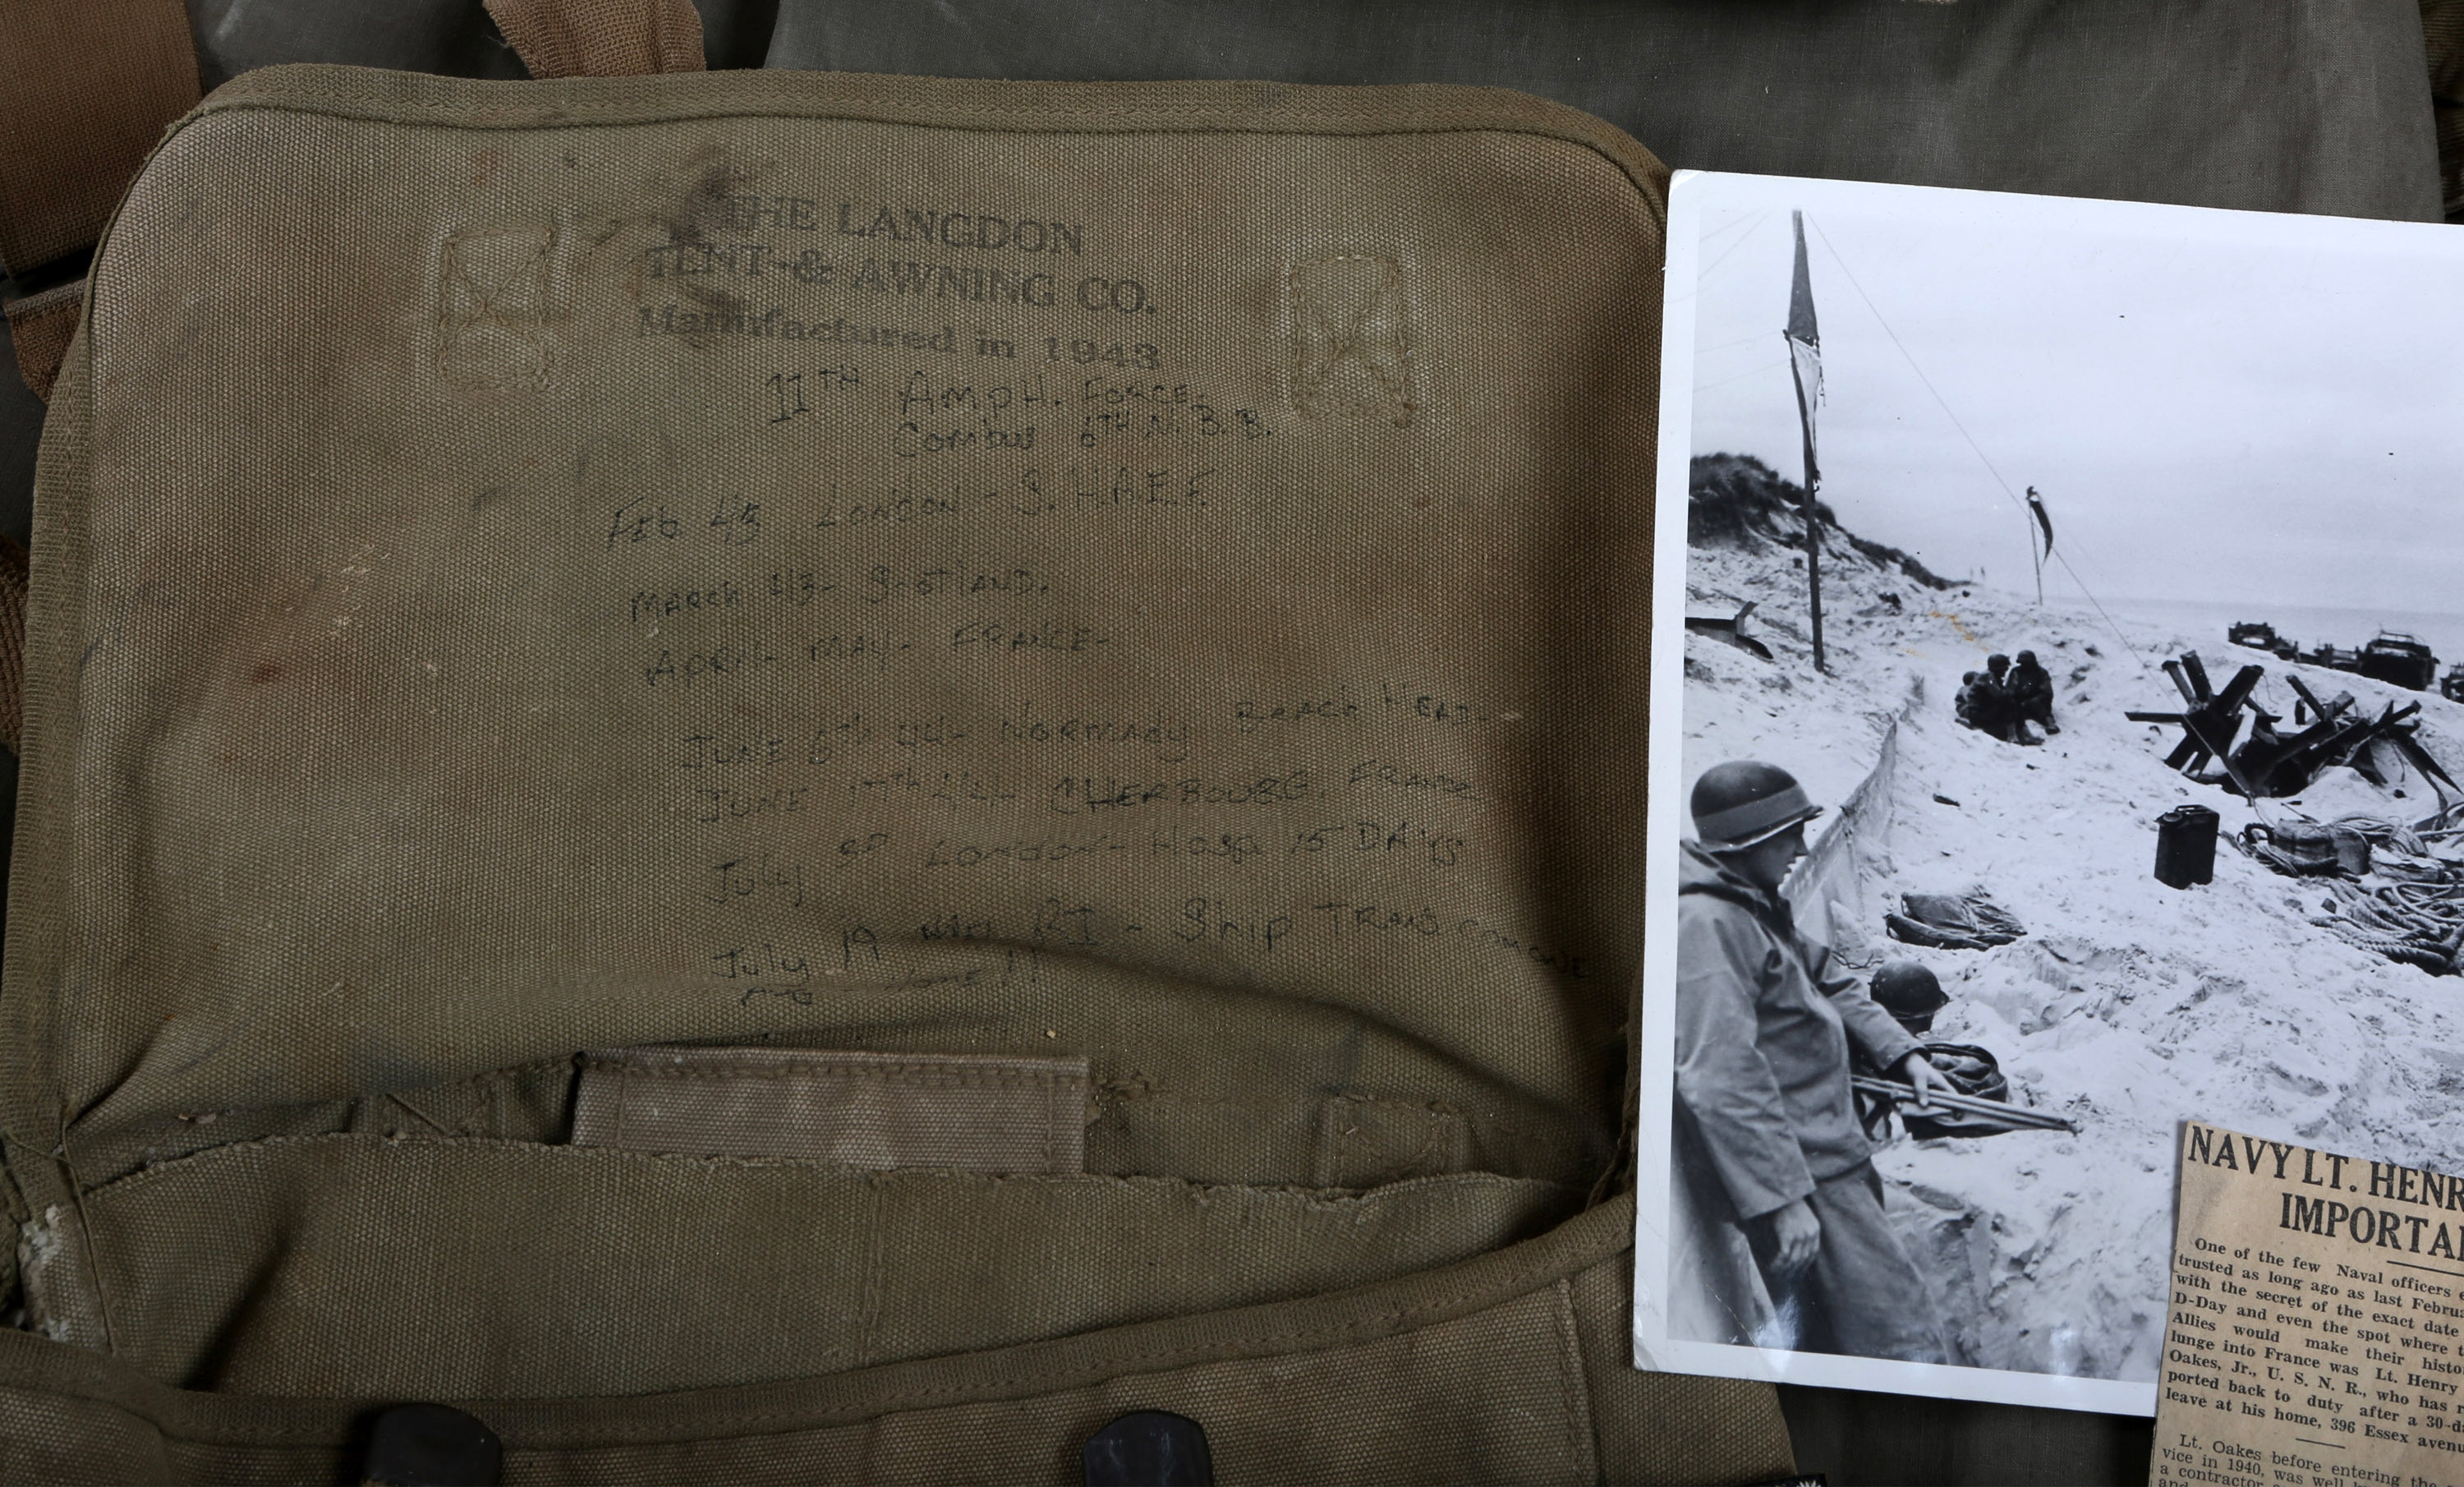 THE LANGDON
TENT-& AWNING CO.
Manufactured in 1943
11TH AMPH. FORCE
COMBU 6TH N.B.B.
Feb 43 LONDON - S.H.A.E.F.
MARCH 43-
APRIL MAY- FRANCE-
JUNE 6th 44- NORMANDY BEACH HEAD-
JUNE 17th 44- CHERBOURG, FRANCE
July LONDON- HOSP 15 DAYS
July 19 - Ship TRANS
HOME !!
NAVY LT. HENR
IMPORTA
One of the few Naval officers e
trusted as long ago as last Februa
with the secret of the exact date
D-Day and even the spot where t
Allies would make their histo
lunge into France was Lt. Henry
Oakes, Jr., U. S. N. R., who has r
ported back to duty after a 30-d
leave at his home, 396 Essex avenu
Lt. Oakes before entering the
vice in 1940, was well
a contractor
and